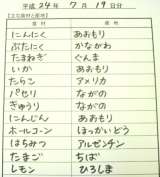 平成 24年 7月 19日分
【主な食材と産地】
食材 産地
にんにく あおもり
ぶたにく かながわ
たまねぎ ぐんま
いか あおもり
たらこ アメリカ
パセリ ながの
きゅうり ながの
にんじん あおもり
ホールコーン ほっかいどう
はちみつ アルゼンチン
たまご ちば
レモン ひろしま